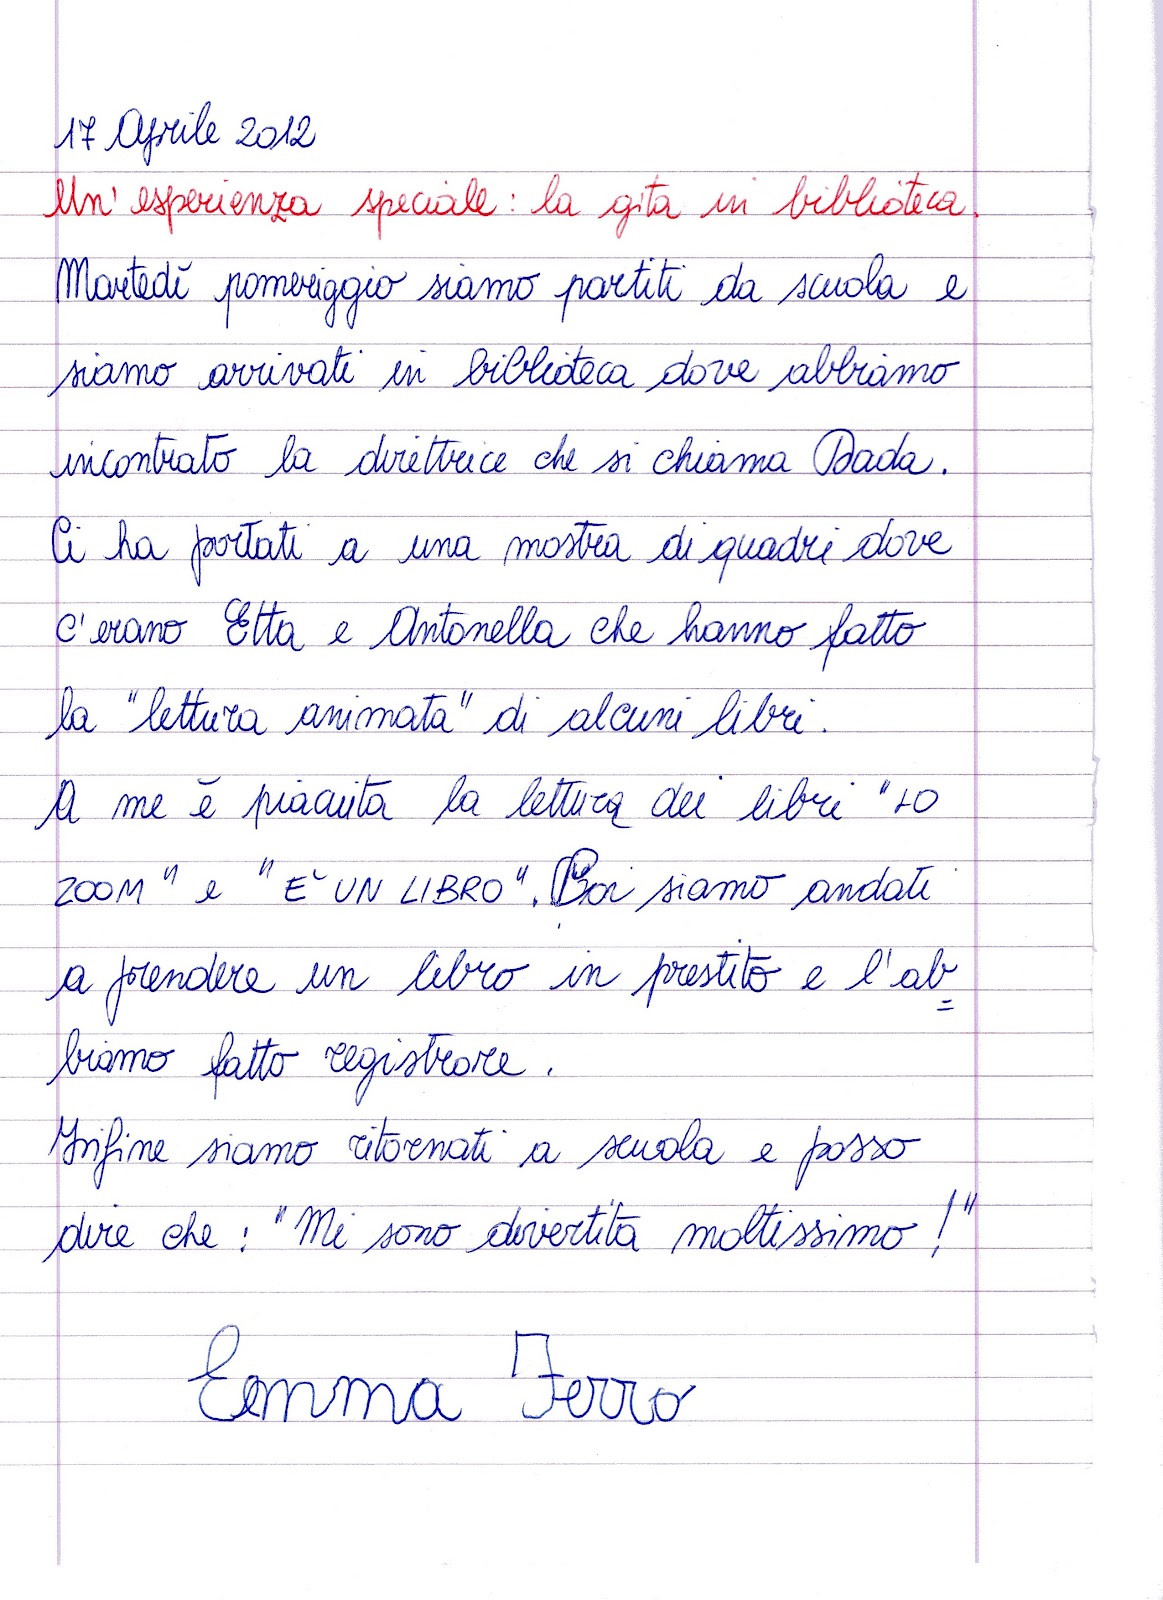 17 Aprile 2012
Un'esperienza speciale: la gita in biblioteca.
Martedì pomeriggio siamo partiti da scuola e
siamo arrivati in biblioteca dove abbiamo
incontrato la direttrice che si chiama Dada.
Ci ha portati a una mostra di quadri dove
c'erano Etta e Antonella che hanno fatto
la "lettura animata" di alcuni libri.
A me è piaciuta la lettura dei libri "LO
ZOOM" e "E' UN LIBRO". Poi siamo andati
a prendere un libro in prestito e l'ab=
biamo fatto registrare.
Infine siamo ritornati a scuola e posso
dire che: "Mi sono divertita moltissimo!"
Emma Ferro